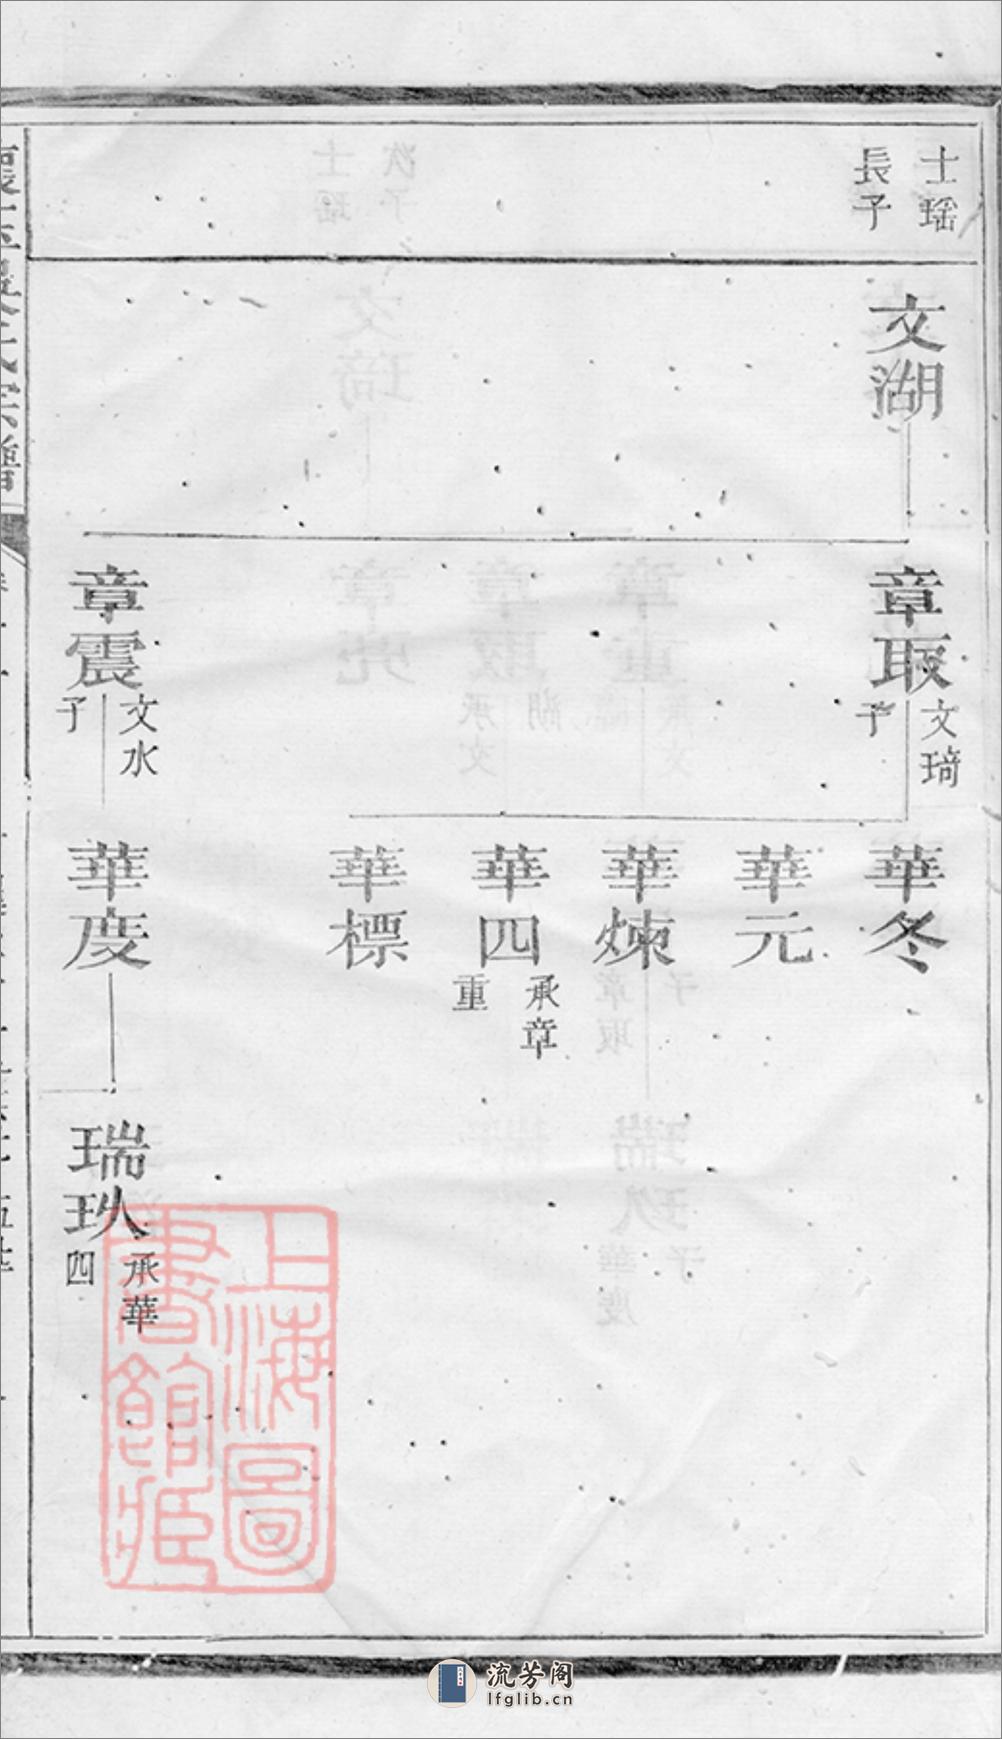 士瑶
長子
文湖
章取
文琦
子
華冬
華元
華煉
華四
承章
重
華標
章震
文水
子
華度
瑞玖
承華
四
上海圖
書館藏
流芳阁
lfglib.cn